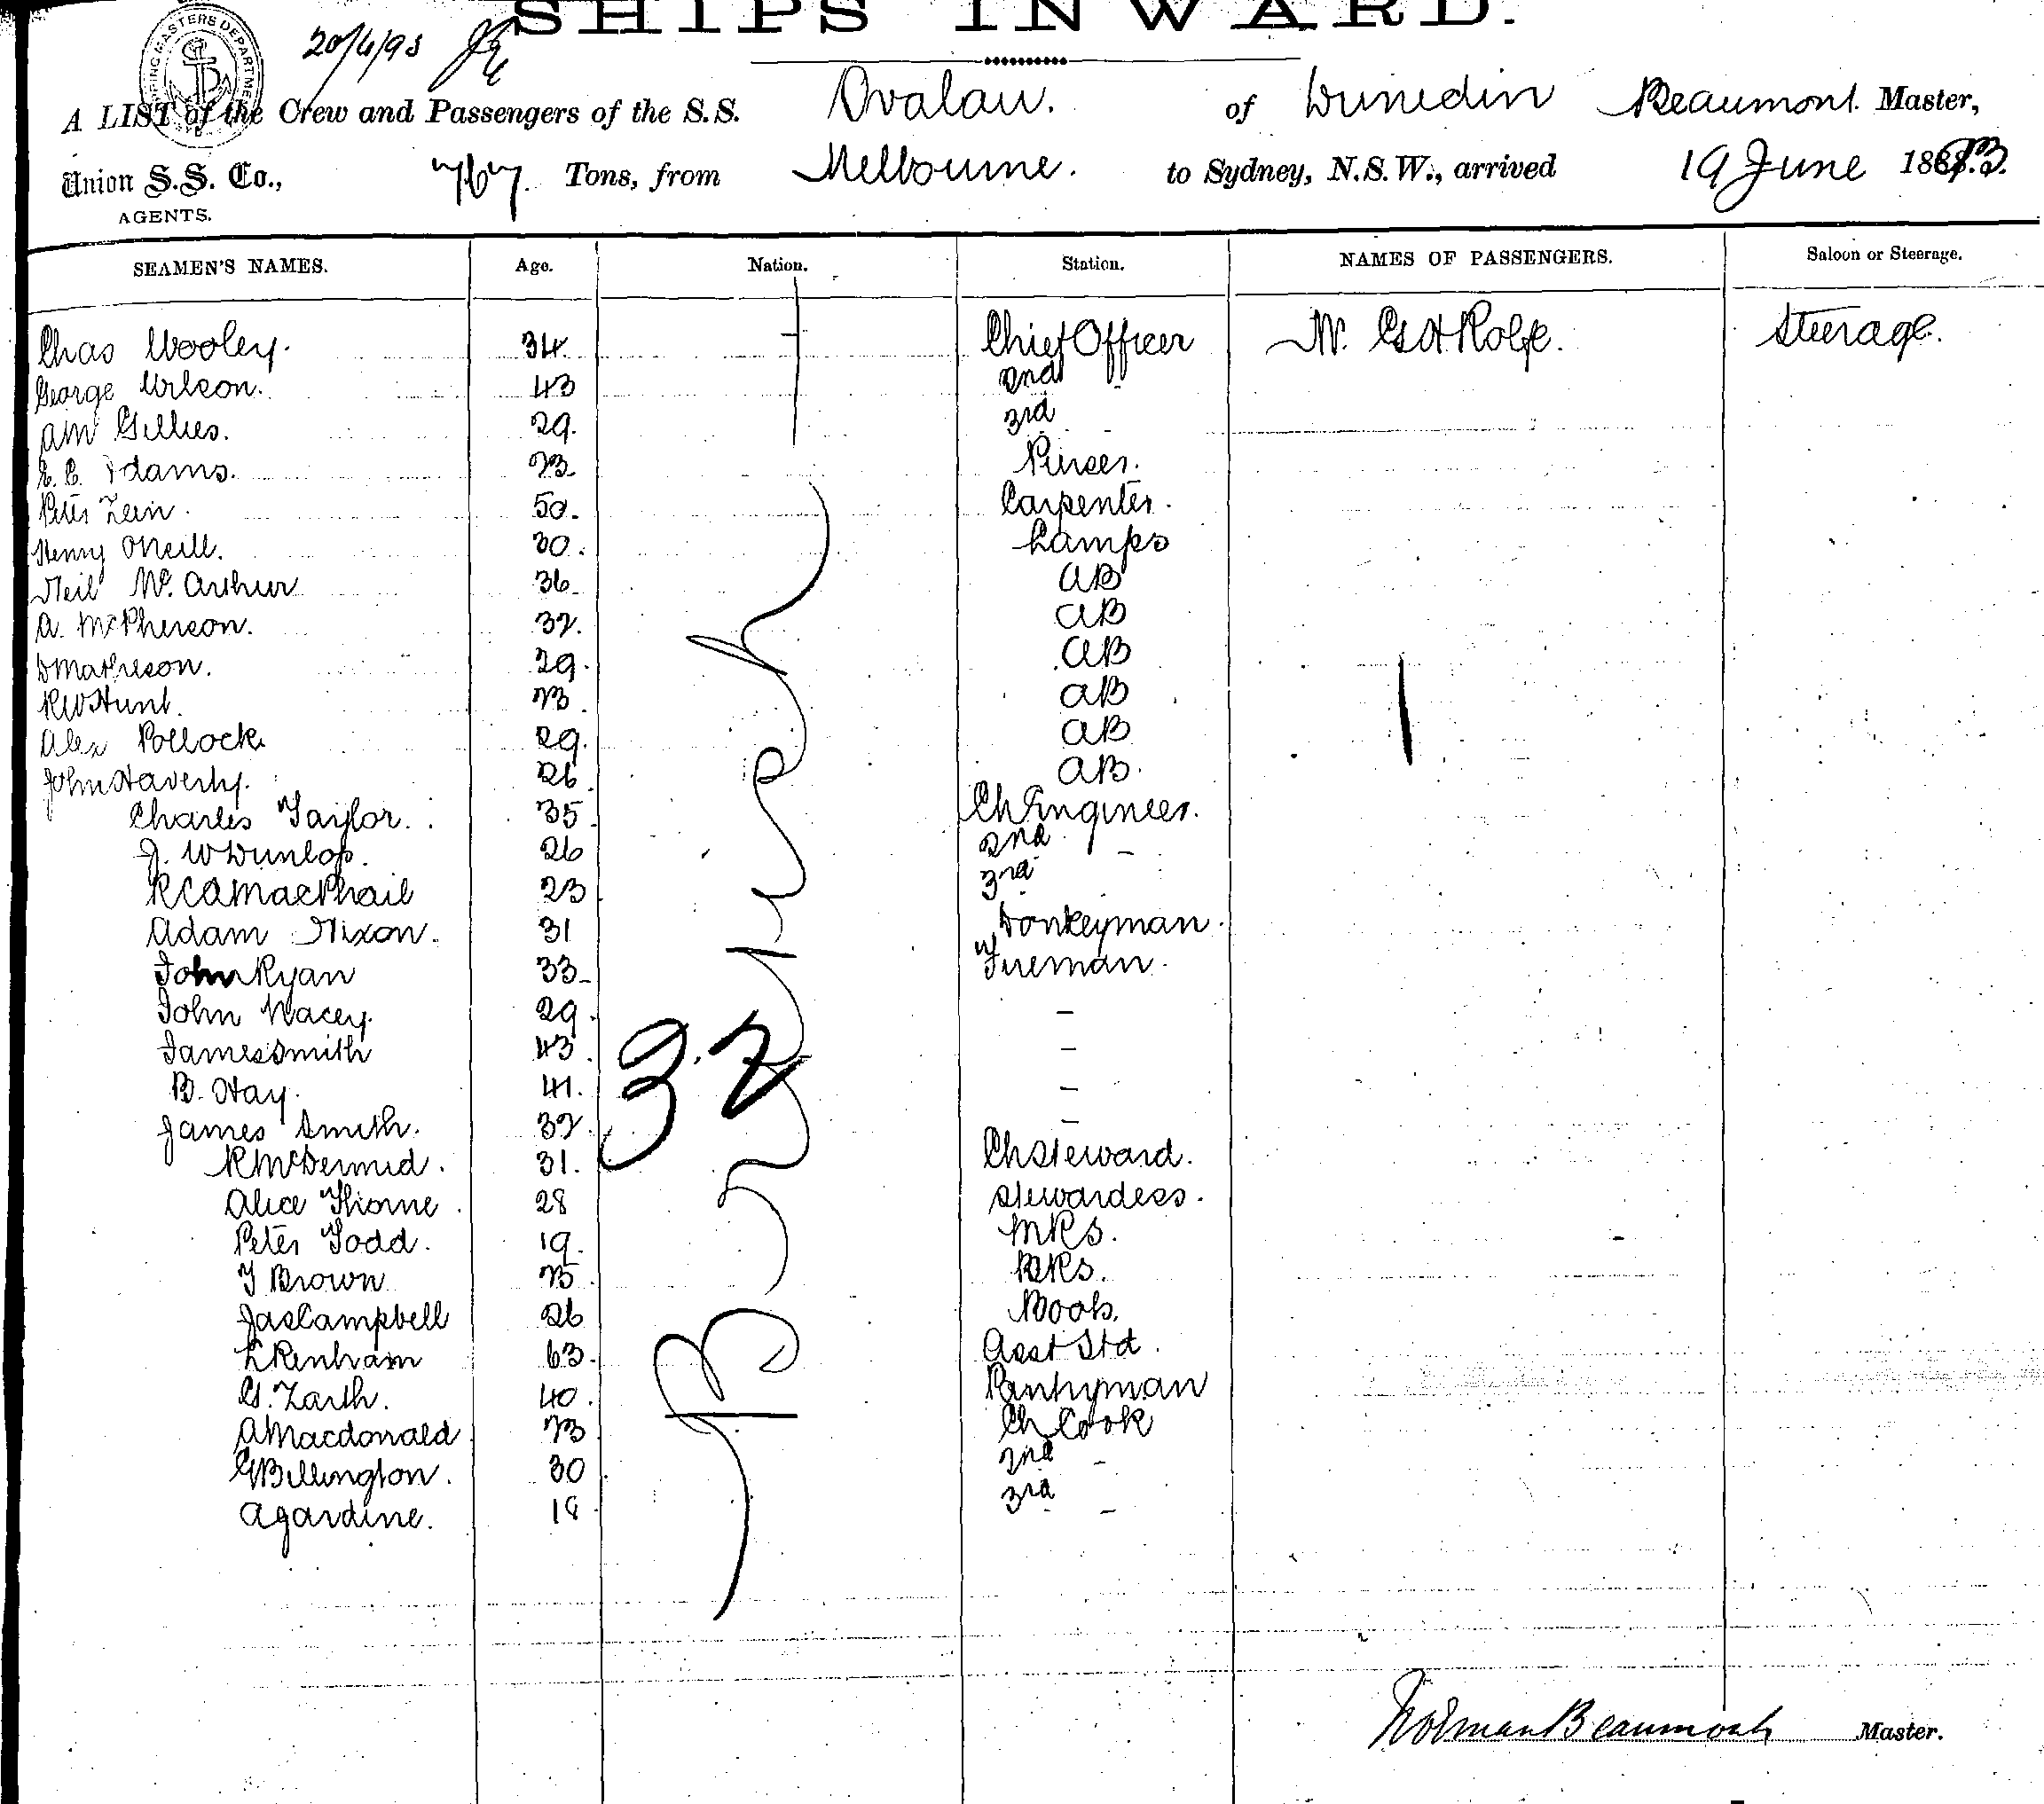 SHIPS INWARD.
20/6/93
SHIPPING MASTERS DEPARTMENT
A LIST of the Crew and Passengers of the S.S. Ovalau. of Dunedin Beaumont. Master,
Union S.S. Co., 767. Tons, from Melbourne. to Sydney, N.S.W., arrived 19 June 1893.
AGENTS.
SEAMEN'S NAMES. Age. Nation. Station. NAMES OF PASSENGERS. Saloon or Steerage.
Chas Wooley. 34. Chief Officer Rolfe. Steerage.
George Wilson. 43 2nd -
AM Gillies. 29. 3rd -
E. C. Adams. 23. Purser.
Peter Zein. 50. Carpenter.
Henry ONeill. 30. Lamps
Neil Mc. Arthur 36. AB
A. McPherson. 32. AB
D Matheson. 29. AB
R W Hunt. 23. AB
Alex Pollock. 29. AB
John Haverty. 26. AB.
Charles Taylor. 35 Ch Engineer.
J. W Dunlop. 26 2nd -
R C A MacPhail 23 3rd -
Adam Nixon. 31 Donkeyman.
John Ryan 33 Fireman.
John Macey. 29. -
James Smith 43. -
B. Hay. 41. -
James Smith. 32. -
R McDermid. 31. Ch Steward.
Alice Thorne. 28 Stewardess.
Peter Todd. 19. MRS.
T Brown 25. BRS.
Jas Campbell 26
L Renham 63. Asst Std.
G. Zarth. 40. Pantryman
A Macdonald 23 Ch Cook
G Billington. 30 2nd -
A Jardine. 18 3rd -
British
32
Norman Beaumont Master.